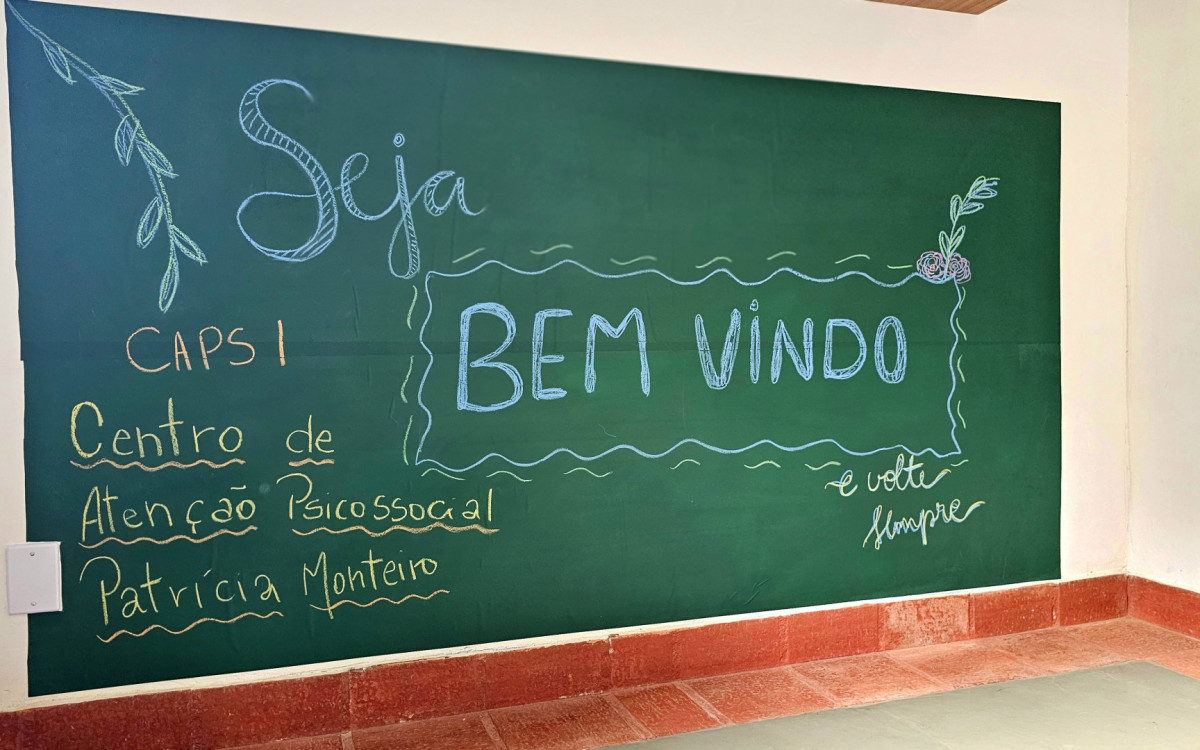 Seja
BEM VINDO
e volte
sempre
CAPS I
Centro de
Atenção Psicossocial
Patrícia Monteiro